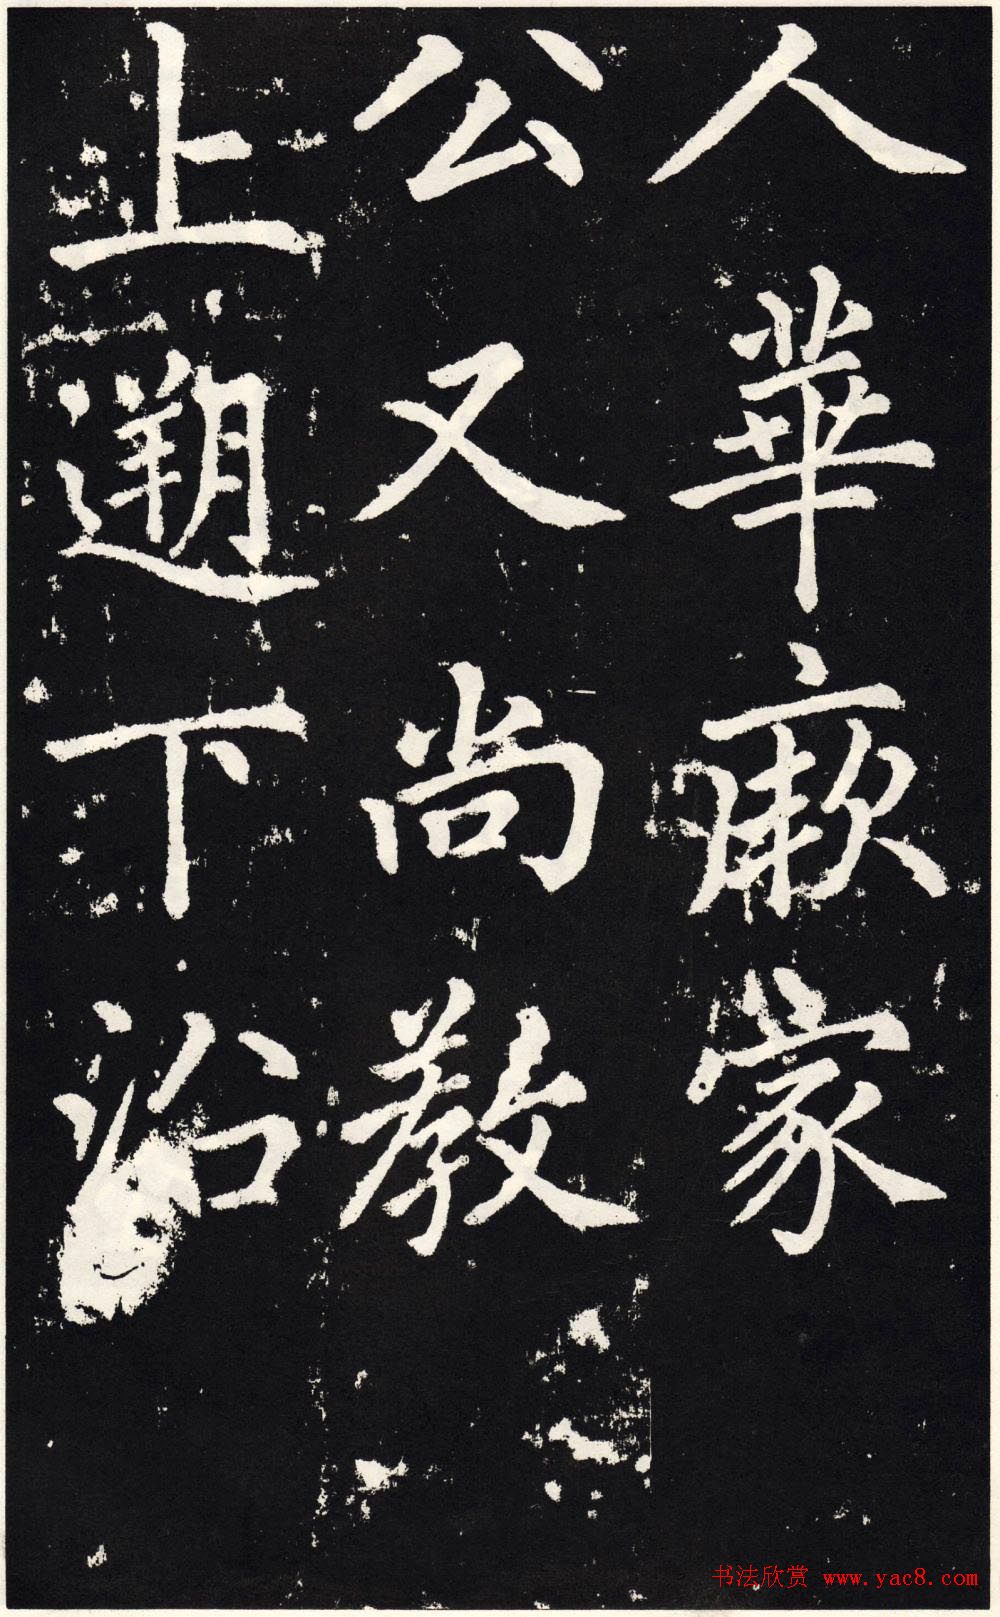 人華厥家
公又尚教
上遡下沿
书法欣赏 www.yac8.com